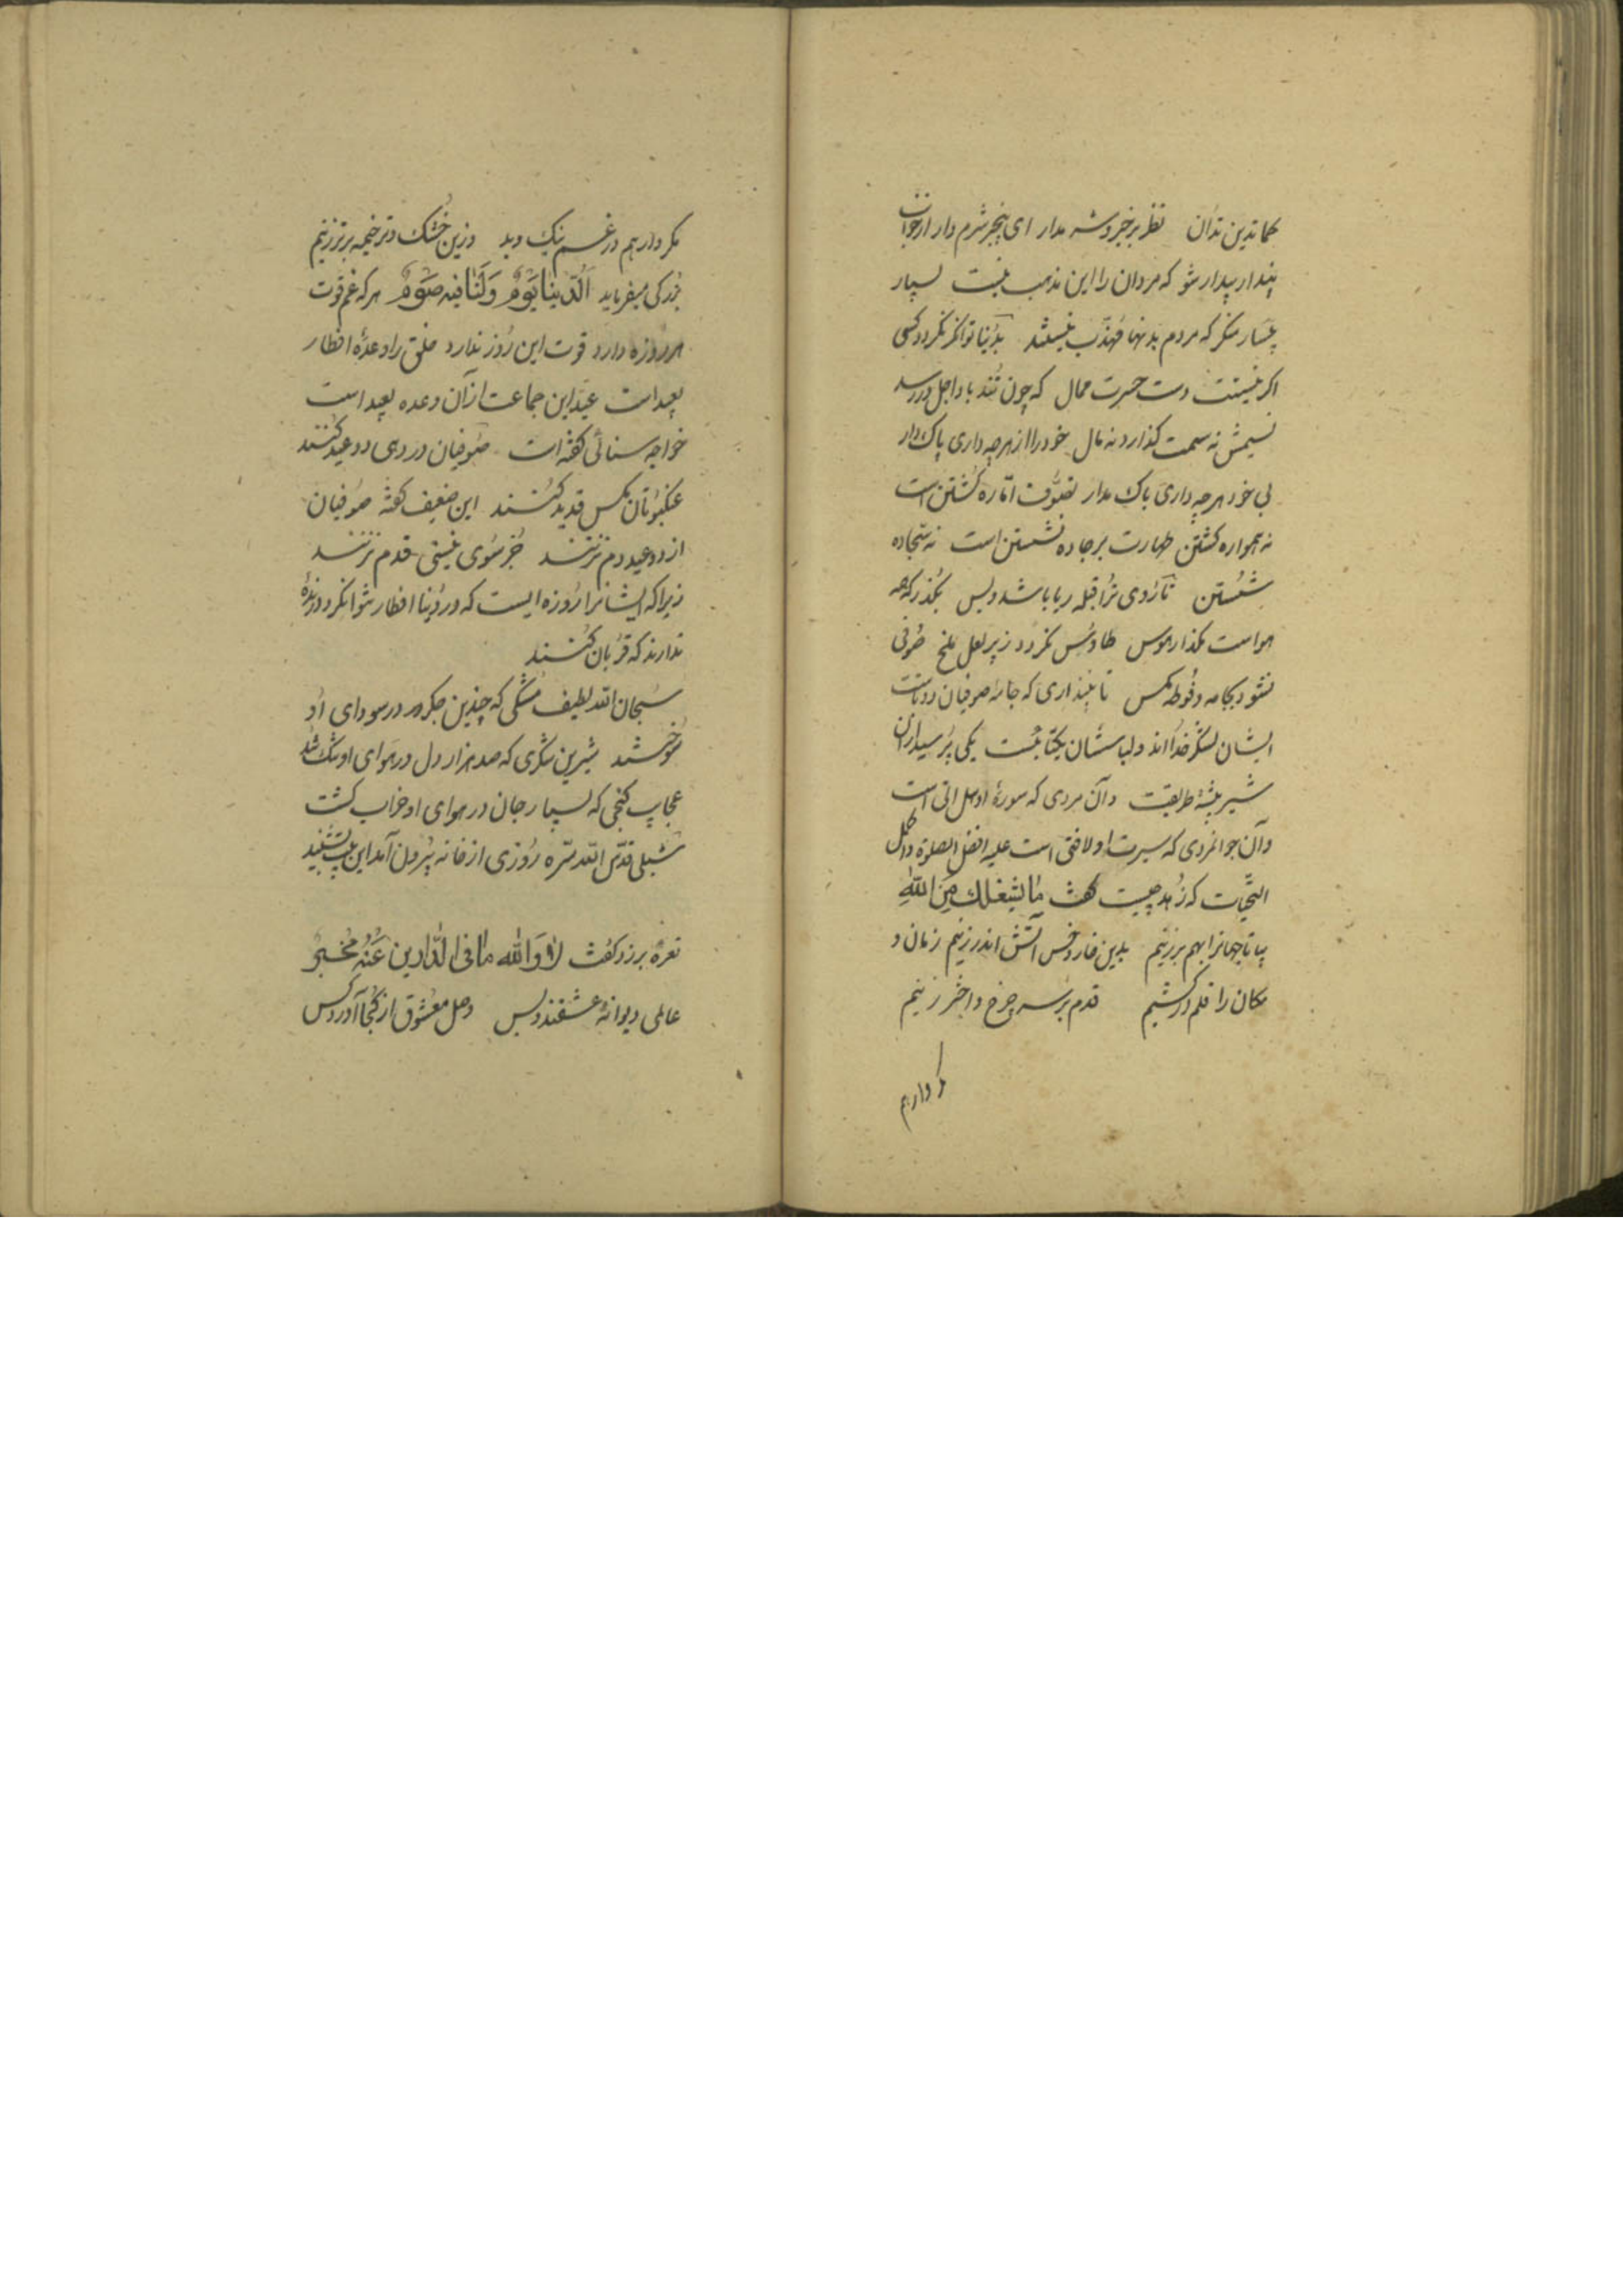 کما تدین تدان نظر بر خیر و شر مدار ای بیخبر شرم دار از خواب
پندار بیدار شو که مردان را این مذهب نیست بسیار
بیسار منکر که مردم بدینها مهذب نیستند بدنیا توانکر نکردد کسی
اکر نیستت دست حسرت ممال که چون تند باد اجل در رسد
نسیمش نه سمت کذارد نه مال خود را از هرچه داری پاک دار
بی خود هرچه داری باک مدار تصوف اماره کشتن است
نه همواره کشتن طهارت بر جاده نشستن است نه سجاده
شستن تا روی ترا قبله ریا باشد و بس بکذر که همه
هواست بکذار هوس طاوس نکردد زیر لعل ملخ صوفی
نشود بجامه و فوطه مکس تا نپنداری که جامه صوفیان دوتاست
ایشان لشکر خدا اند و لباسشان یکتا یکی پرسید از آن
شیر بیشهٔ طریقت و آن مردی که سورهٔ او هل اتی است
و آن جوانمردی که سیرت او لافتی است علیه افضل الصلوة و اکمل
التحیات که زهد چیست کفت ما یشغلک من الله
بیا تا جهانرا بهم برزنیم بدین خار و خس آتش اندر زنیم زمان و
مکان را قلم در کشیم قدم بر سر چرخ و اختر زنیم
مکر دارهم
مکر دارهم در غم نیک و بد وزین خشک و تر خیمه برتر زنیم
بزرکی میفرماید الدنیا یوم ولنا فیه صوم هر که غم قوت
هر روزه دارد قوت این روز ندارد خلق را وعدهٔ افطار
بعید است عید این جماعت از آن وعده بعید است
خواجه سنائی کفته است صوفیان در دمی دو عید کنند
عنکبوتان مکس قدید کنند این ضعیف کفته صوفیان
از دو عید دم نزنند جز سوی نیستی قدم نزنند
زیرا که ایشانرا روزه ایست که در دنیا افطار نتوانکرد و بدنهٔ
ندارند که قربان کنند
سبحان الله لطیف مشکی که چندین جکر در سودای او
سوخته شد شیرین شکری که صد هزار دل در هوای او تنک شد
عجایب کنجی که بسیار جان در هوای او خراب کشت
شبلی قدس الله سره روزی از خانه بیرون آمد این بیت بشنید
نعرهٔ برزد کفت لا والله ما فی الدارین عنه مخبر
عالمی دیوانهٔ عشقند و بس وصل معشوق از کجا آورد کس